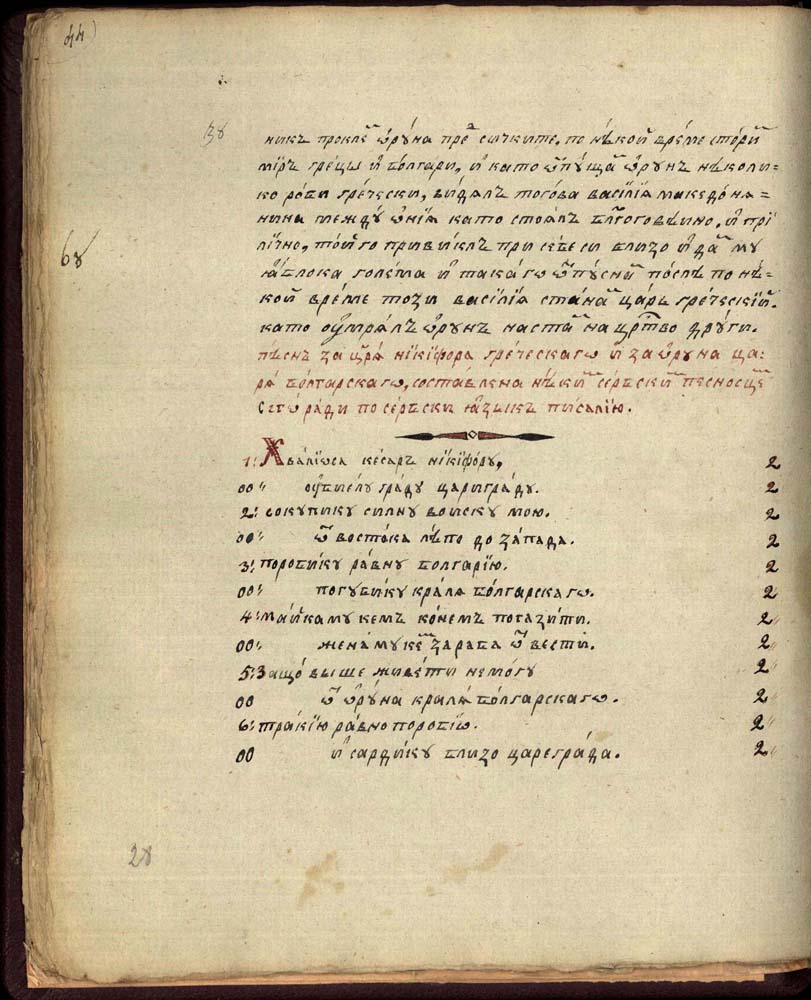 44)
38
никъ прокле҃ ѡ҆ру́на пре҃ сичките, по нѣкои҆ вре́ме стори҃
миръ гре́цы и҆ бо́лгари, и҆ като ѿпꙋща҃ ѡ҆рунъ нѣколи=
ко роби гре́чески, ви́дялъ тогова васі́лїа македо́на=
нина междꙋ ѡ҆нїа като стоялъ бл҃гоговѣино, и҆ прі
ли́чно, то́и го привиклъ при се́бе си близо и҆ да҃ му
ꙗ҆блока голема и҆ така́гѡ ѿпꙋсни҃ по́слѣ по нѣ=
кои҆ вре́ме този васі́лїа ста́на҃ ца́рь гре́ческїи҆.
като ᲂу҆мря́лъ ѡ҆рунъ наста҃ на црⷭ҇тво дрꙋги.
пѣснь за цр҃ѧ нікїфора гре́ческагѡ и҆ за ѡ҆ру́на ца=
рѧ́ бо́лгарскагѡ, составлена нѣки҃ се́рбски҃ песносще҃
Сегѡ̀ ради по се́рбски ꙗ҆зыкъ писалїю.
1: Хва́лїѡса ке́саръ нікіфо́рꙋ, 2
00" ᲂу҆ биелꙋ гра́дꙋ царигра́дꙋ. 2
2: сокупику силнꙋ воискꙋ мою. 2
00: ѿ восто́ка лѣпо до за́пада. 2
3: пороби́кꙋ ра́внꙋ болга́рїю. 2
00: погꙋби́кꙋ кра́лѧ бо́лгарскагѡ. 2
4: маи҆камꙋ кемъ ко́немъ погази́ти. 2
00: жена́ мꙋ ке҃ за раба ѿвести. 2
5: Защо́ выше живе́ти немо́гꙋ 2
00 ѿ ѡ҆ру́на кралѧ бо́лгарскагѡ. 2
6: тракїю ра́вно поробїѡ. 2
00 и҆ сарди́кꙋ близо царегра́да. 2
68
28